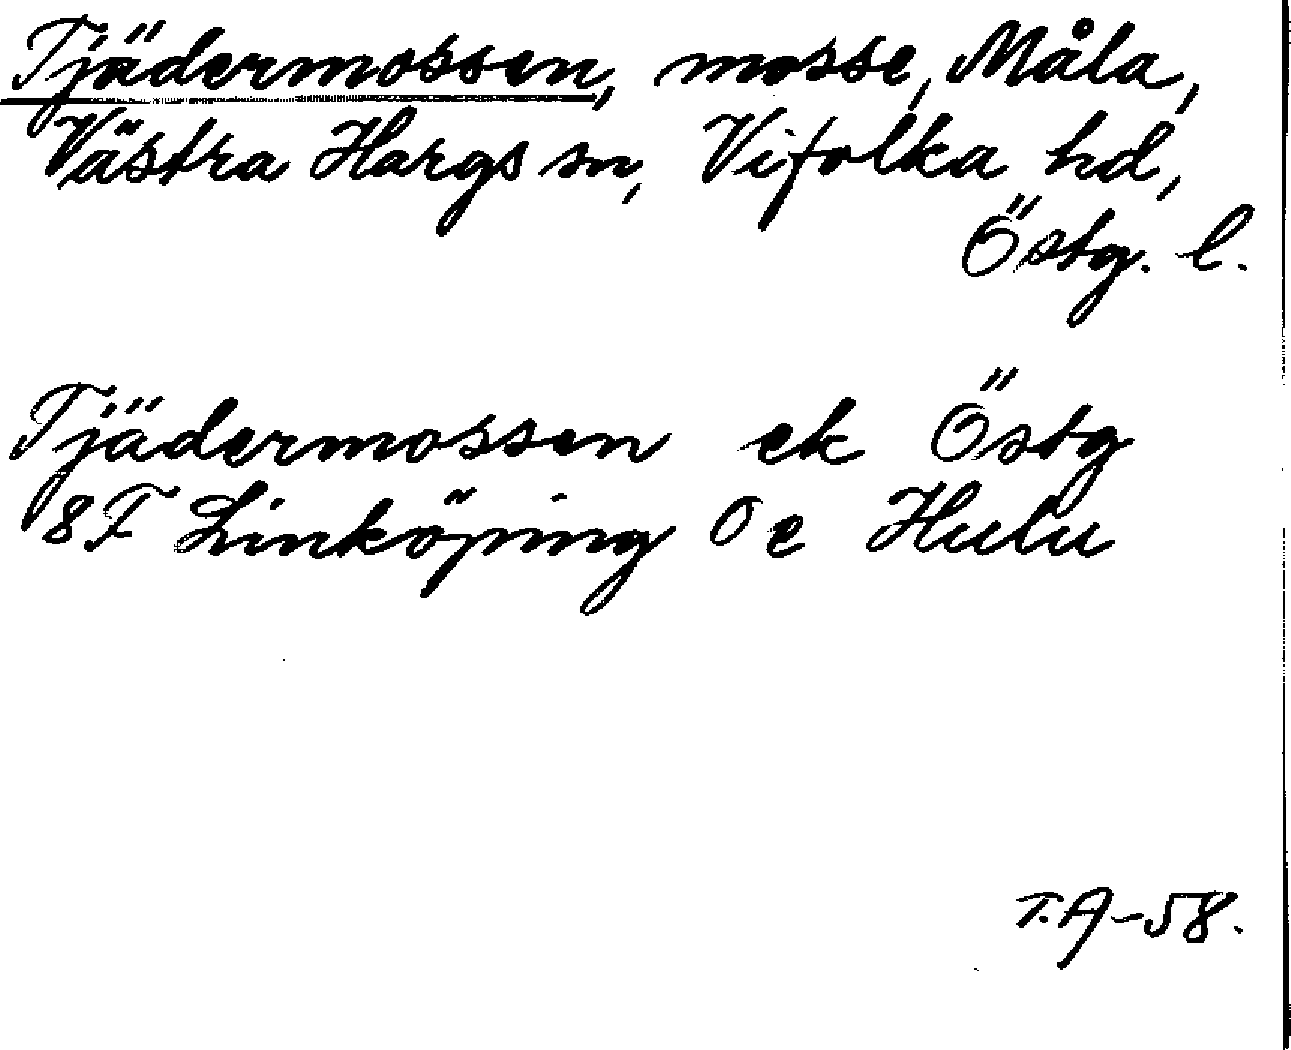 Tjädermossen, mosse, Måla,
Västra Hargs sn, Vifolka hd,
Östg. l.
Tjädermossen ek Östg
8F Linköping 0 e Hulu
T.A-58.